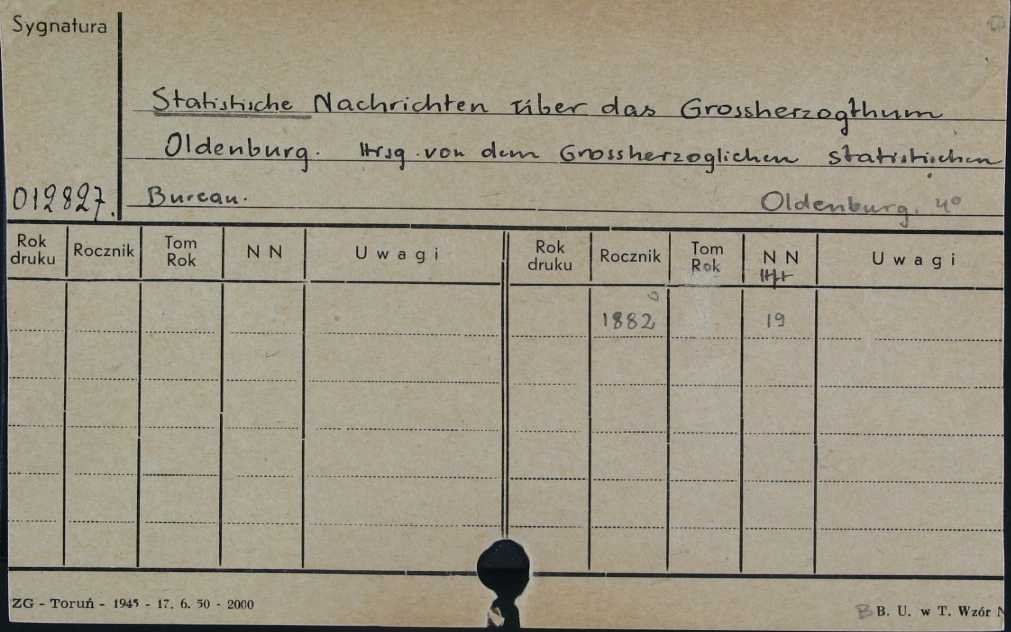 Sygnatura
Statistische Nachrichten über das Grossherzogthum
Oldenburg. Hrsg. von dem Grossherzoglichen statistischen
012827. Bureau. Oldenburg. 4°
Rok druku Rocznik Tom Rok N N Uwagi Rok druku Rocznik Tom Rok N N Uwagi
Hft
1882 19
ZG - Toruń - 1945 - 17. 6. 50 - 2000 B B. U. w T. Wzór N